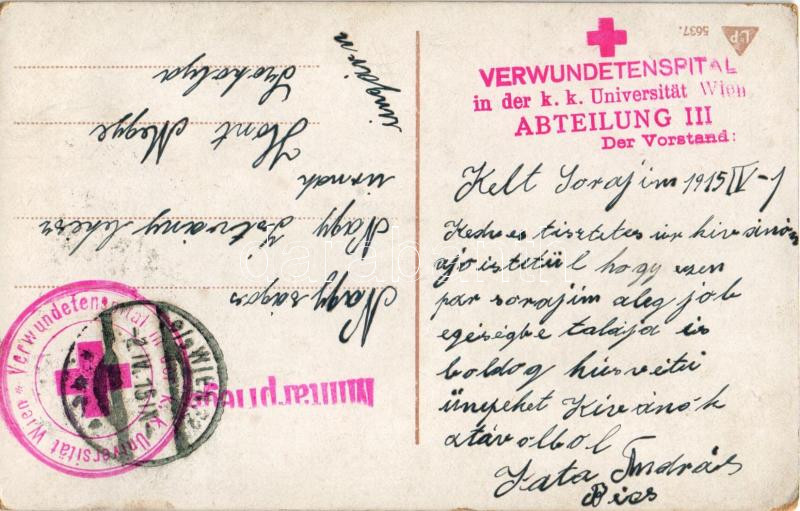 5637.
VERWUNDETENSPITAL
in der k. k. Universität Wien
ABTEILUNG III
Der Vorstand:
Kelt Sorajim 1915 IV-1
Kedves tisztetes úr kivánom
a jo istitül hogy ezen
par sorajim a leg job
egiségbe talája is
boldog húsvéti
ünepeket Kívánok
a távolbol
Kata András
Bécs
Nagyságos
Nagy Istvány
úrnak
Hont Megye
Szokolya
ungarn
Militärpflege
Verwundetenspital in der k. k. Universität Wien
WIEN
2.IV.15